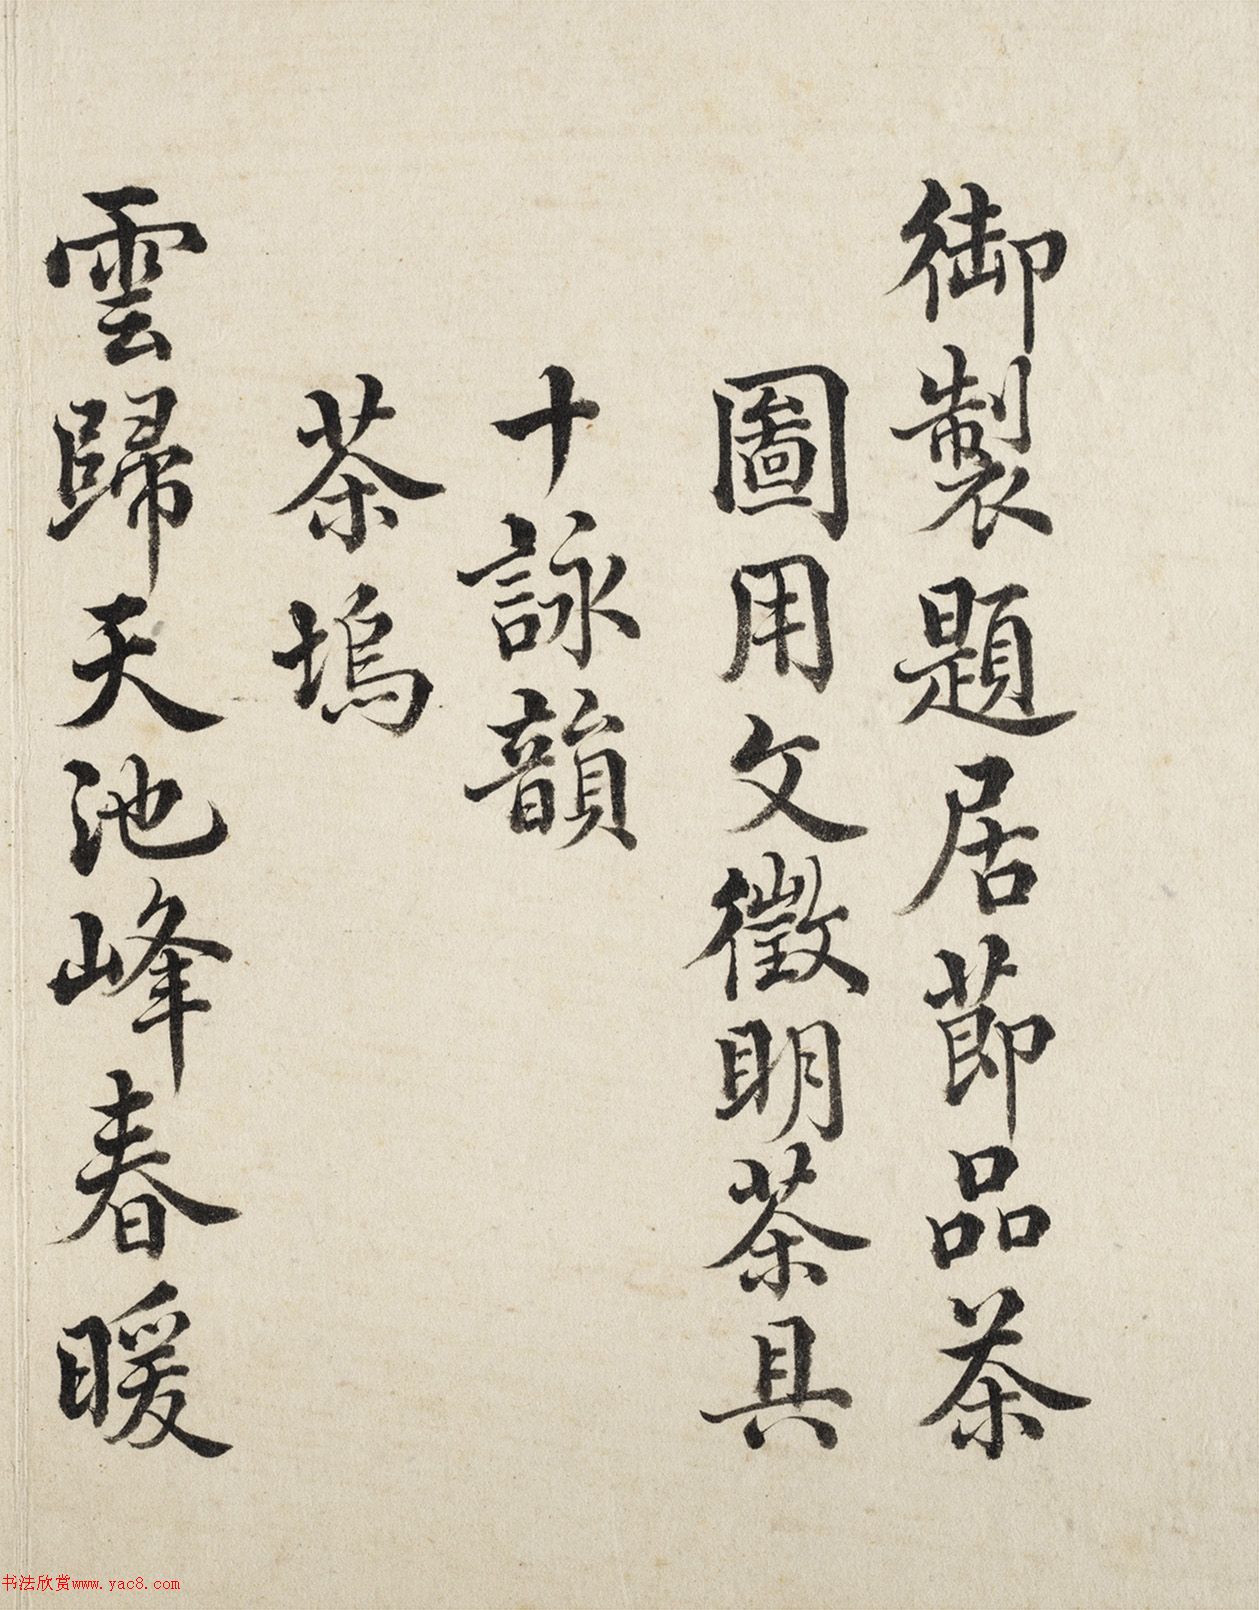 御製題居節品茶
圖用文徵明茶具
十詠韻
茶塢
雲歸天池峰春暖
书法欣赏www.yac8.com